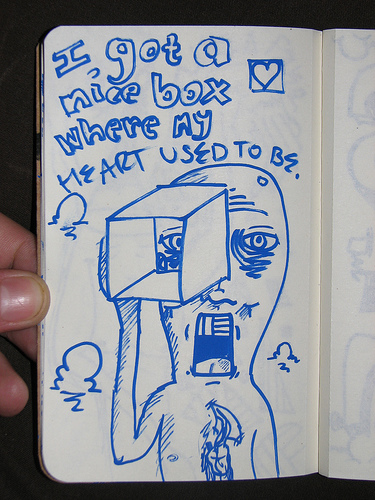 I got a
nice box
where my
HEART USED TO BE.